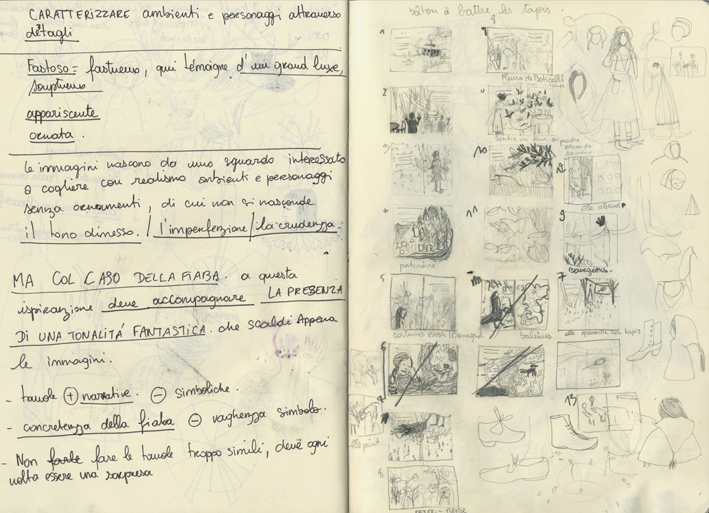 CARATTERIZZARE ambienti e personaggi attraverso
dettagli
Fastoso = fastueux, qui témoigne d'un grand luxe,
somptueux
appariscente
ornata.
Le immagini nascono da uno sguardo interessato
a cogliere con realismo ambienti e personaggi
senza ornamenti, di cui non si nasconde
il tono dimesso. / l'imperfezione / la crudezza.
MA COL CASO DELLA FIABA. a questa
ispirazione deve accompagnare LA PRESENZA
DI UNA TONALITÁ FANTASTICA. che scaldi Appena
le immagini.
- tavole + narrative. - simboliche.
- concretezza della fiaba - vaghezza simbolo.
- Non fare le tavole troppo simili, deve ogni
volta essere una sorpresa
bâton à battre les tapis.
1
2
3
4
patinoire
5
6
7
8
10
11
9
7
13
baleines